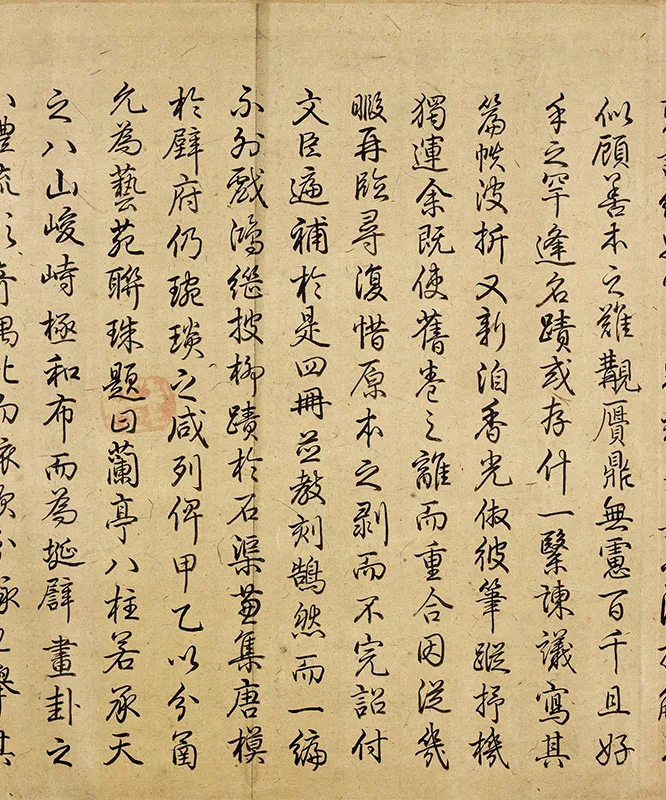 似顧善本之難覯贋鼎無慮百千且好
手之罕逢名蹟或存什一繄諫議寫其
篇帙波折又新洎香光倣彼筆蹤抒機
獨運余既使舊卷之離而重合因從幾
暇再臨尋復惜原本之剥而不完詔付
文臣遍補於是四冊並教刻鵠然而一編
不外戲鴻繼披柳蹟於石渠集唐模
於壁府仍琬琰之咸列俾甲乙以分函
允為藝苑聯珠題曰蘭亭八柱若承天
之八山峻峙極和布而為埏譬畫卦之